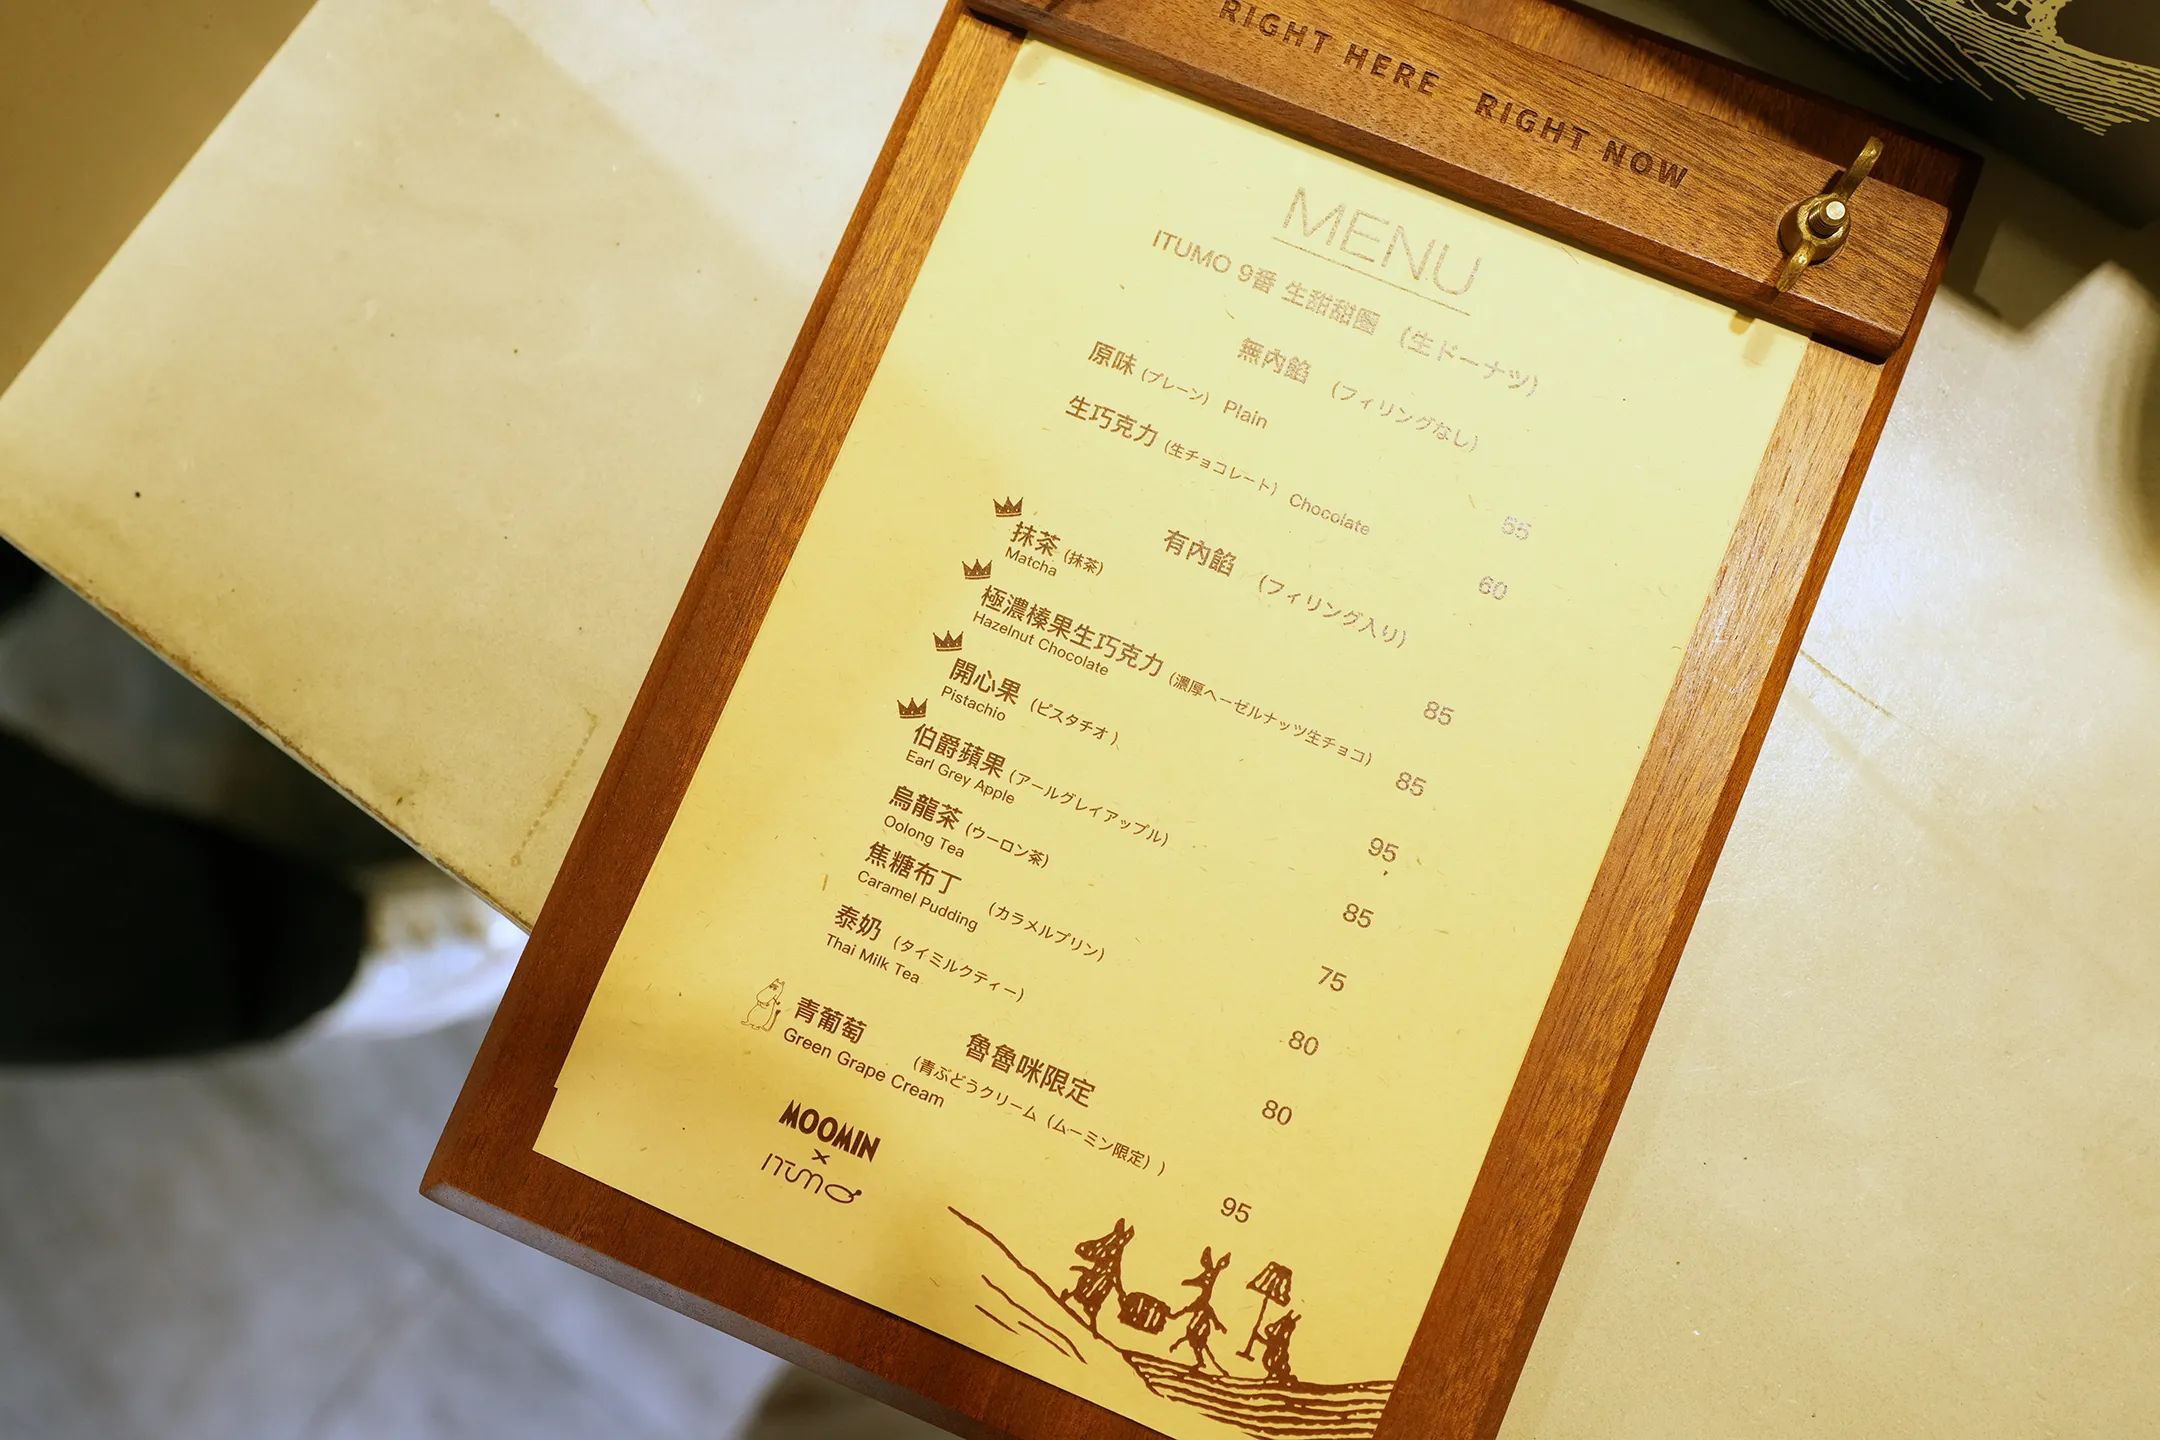 RIGHT HERE RIGHT NOW
MENU
ITUMO 9番 生甜甜圈 (生ドーナツ)
無內餡 (フィリングなし)
原味 (プレーン) Plain 55
生巧克力 (生チョコレート) Chocolate 60
有內餡 (フィリング入り)
抹茶 (抹茶) 85
Matcha
極濃榛果生巧克力 (濃厚ヘーゼルナッツ生チョコ) 85
Hazelnut Chocolate
開心果 (ピスタチオ) 95
Pistachio
伯爵蘋果 (アールグレイアップル) 85
Earl Grey Apple
烏龍茶 (ウーロン茶) 75
Oolong Tea
焦糖布丁 (カラメルプリン) 80
Caramel Pudding
泰奶 (タイミルクティー) 80
Thai Milk Tea
魯魯咪限定
青葡萄 (青ぶどうクリーム (ムーミン限定) ) 95
Green Grape Cream
MOOMIN
×
ITUMO